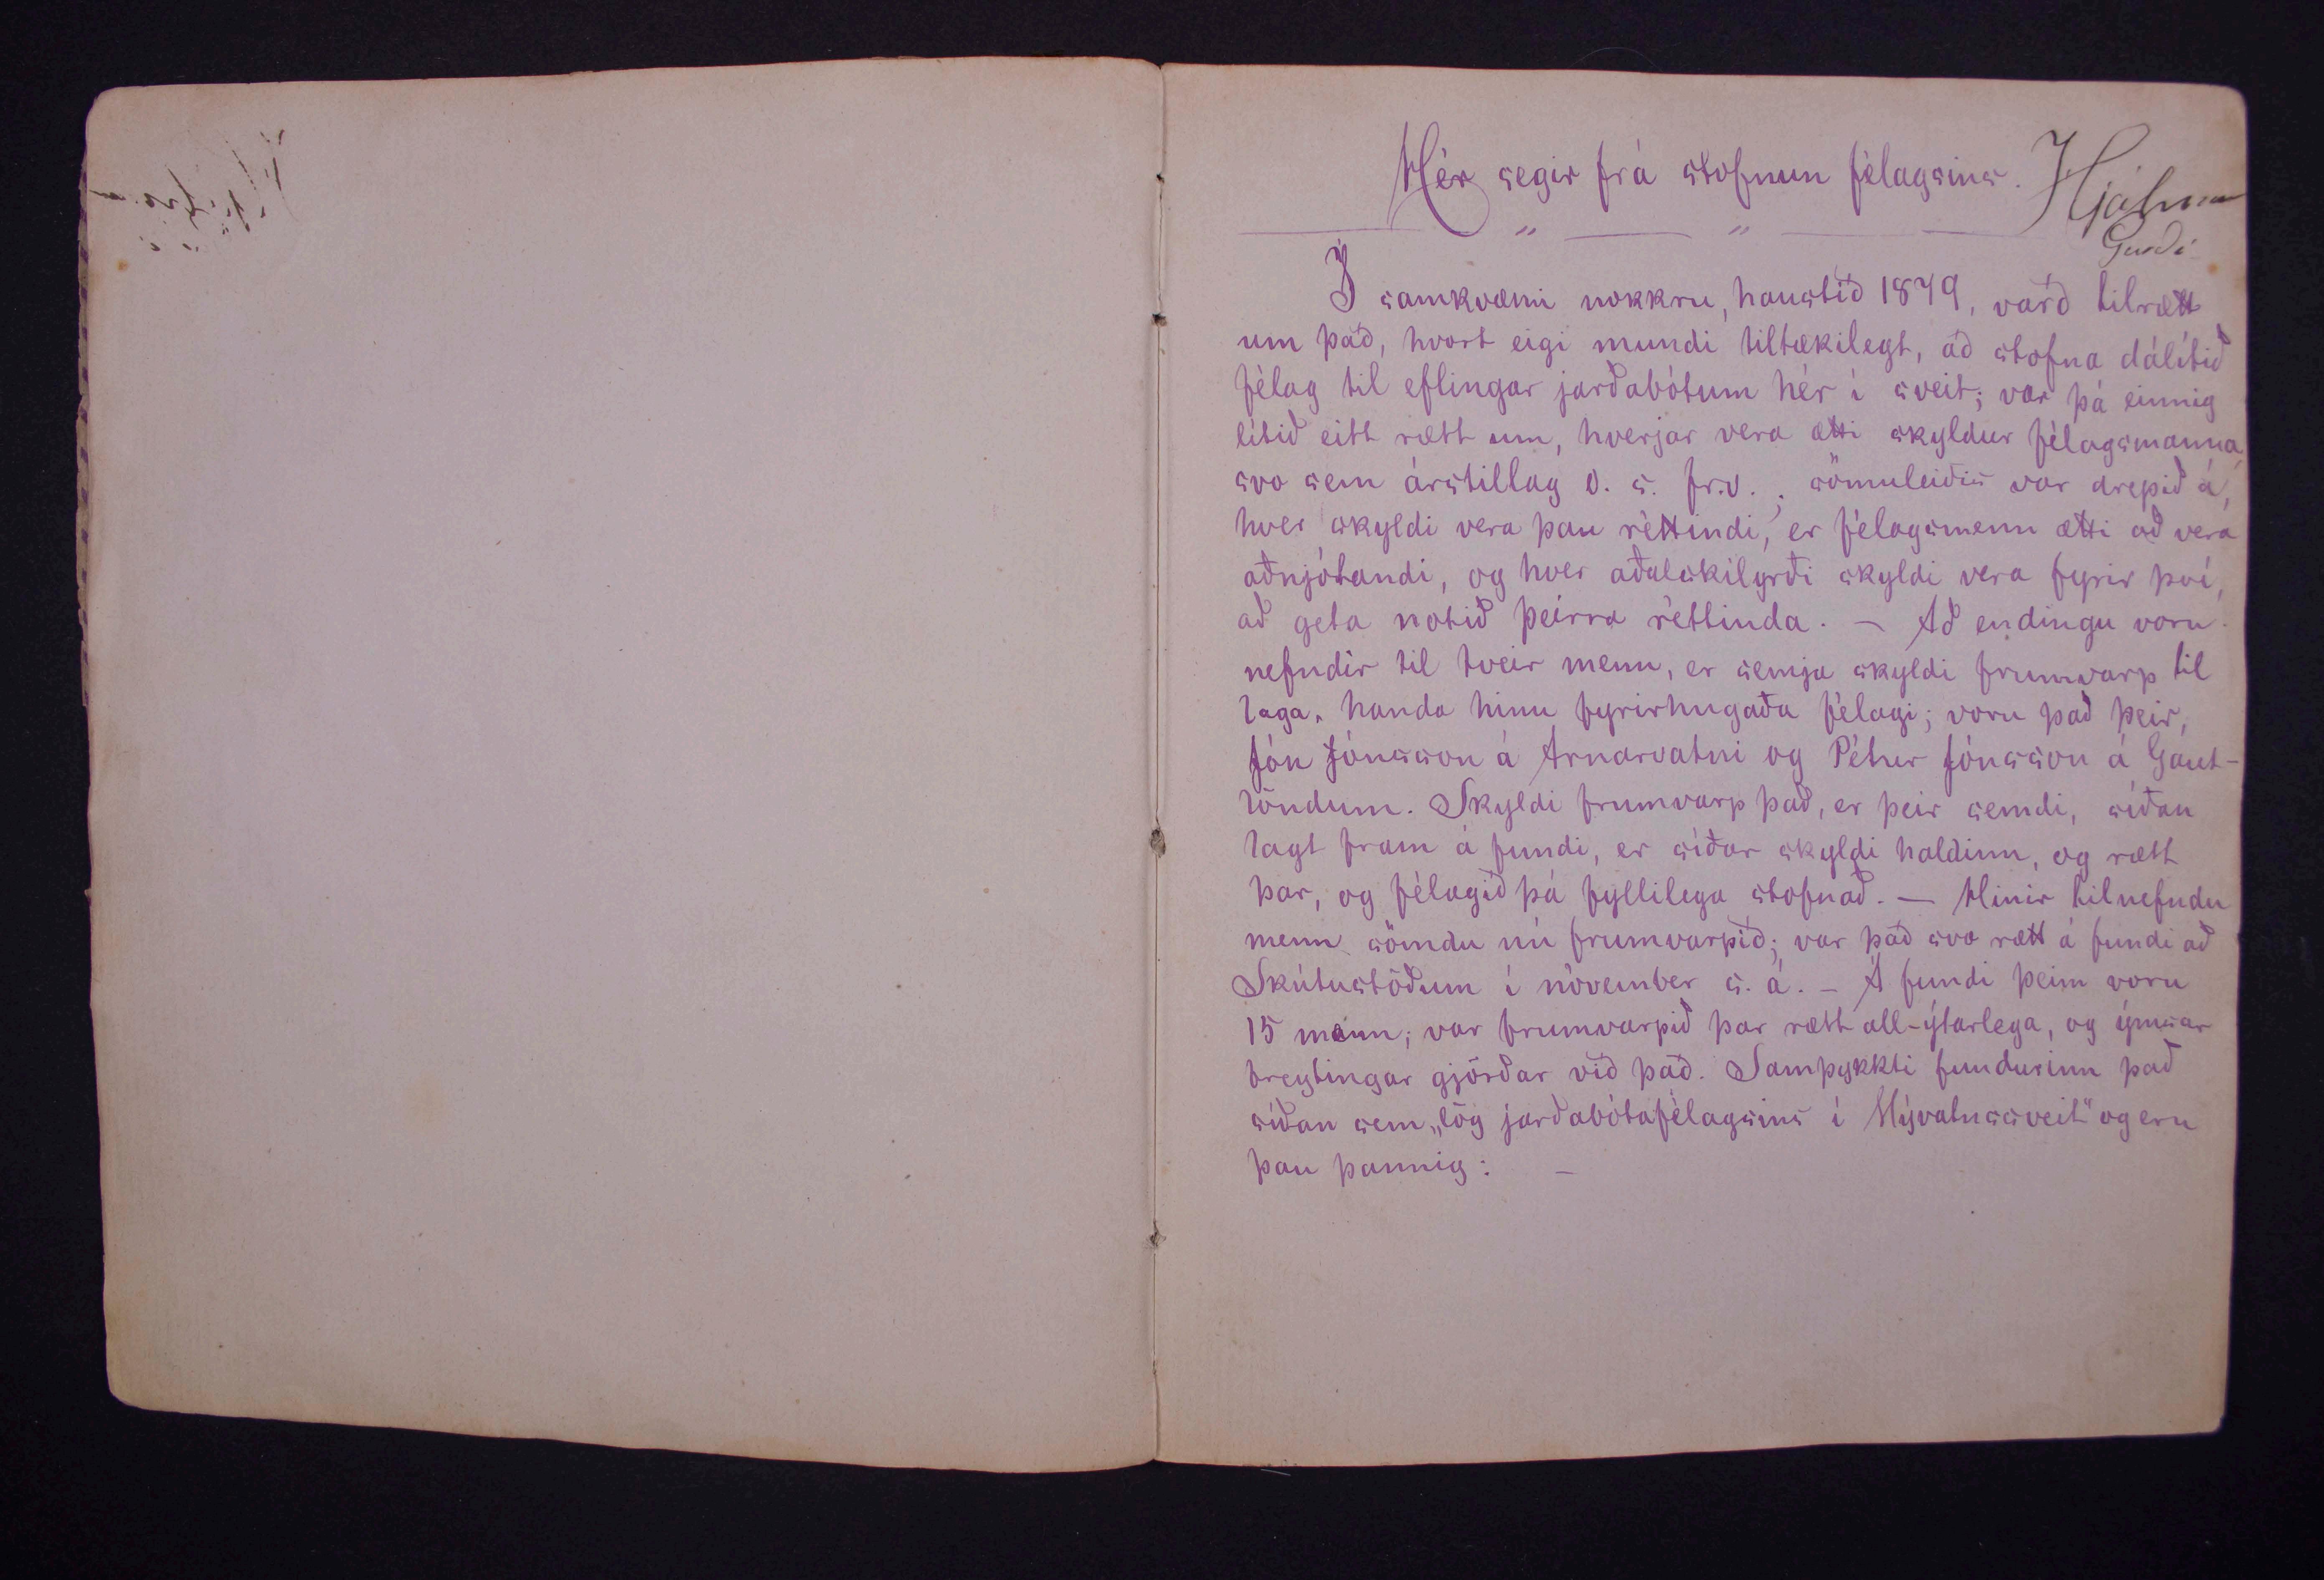 Hér segir frá stofnun félagsins.
Hjálmar
Í samkvæmi nokkru, haustið 1879, varð tilrætt
um það, hvort eigi mundi tiltækilegt, að stofna dálítið
félag til eflingar jarðabótum hér í sveit; var þá einnig
lítið eitt rætt um, hverjar vera ætti skyldur félagsmanna,
svo sem árstillag o. s. fr.v.; sömuleiðis var drepið á,
hver skyldi vera þau réttindi, er félagsmenn ætti að vera
aðnjótandi, og hver aðalskilyrði skyldi vera fyrir því,
að geta notið þeirra réttinda. – Að endingu voru
nefndir til tveir menn, er semja skyldi frumvarp til
laga, handa hinu fyrirhugaða félagi; voru það þeir,
Jón Jónsson á Arnarvatni og Pétur Jónsson á Gaut-
löndum. Skyldi frumvarp það, er þeir semdi, síðan
lagt fram á fundi, er síðar skyldi haldinn, og rætt
þar, og félagið þá fyllilega stofnað. — Hinir tilnefndu
menn sömdu nú frumvarpið; var það svo rætt á fundi að
Skútustöðum í nóvember s. á. – Á fundi þeim voru
15 menn; var frumvarpið þar rætt all-ýtarlega, og ýmsar
breytingar gjörðar við það. Samþykkti fundurinn það
síðan sem „lög jarðabótafélagsins í Mývatnssveit“ og eru
þau þannig: –